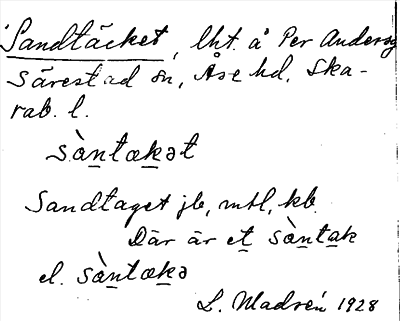 Sandtäcket, lht. å Per Anders
Särestad sn, Åse hd, Ska-
rab. l.
sàntakət
Sandtaget jb, mtl, kb.
Där är et sàntak
el. sàntækə
L. Madsén 1928